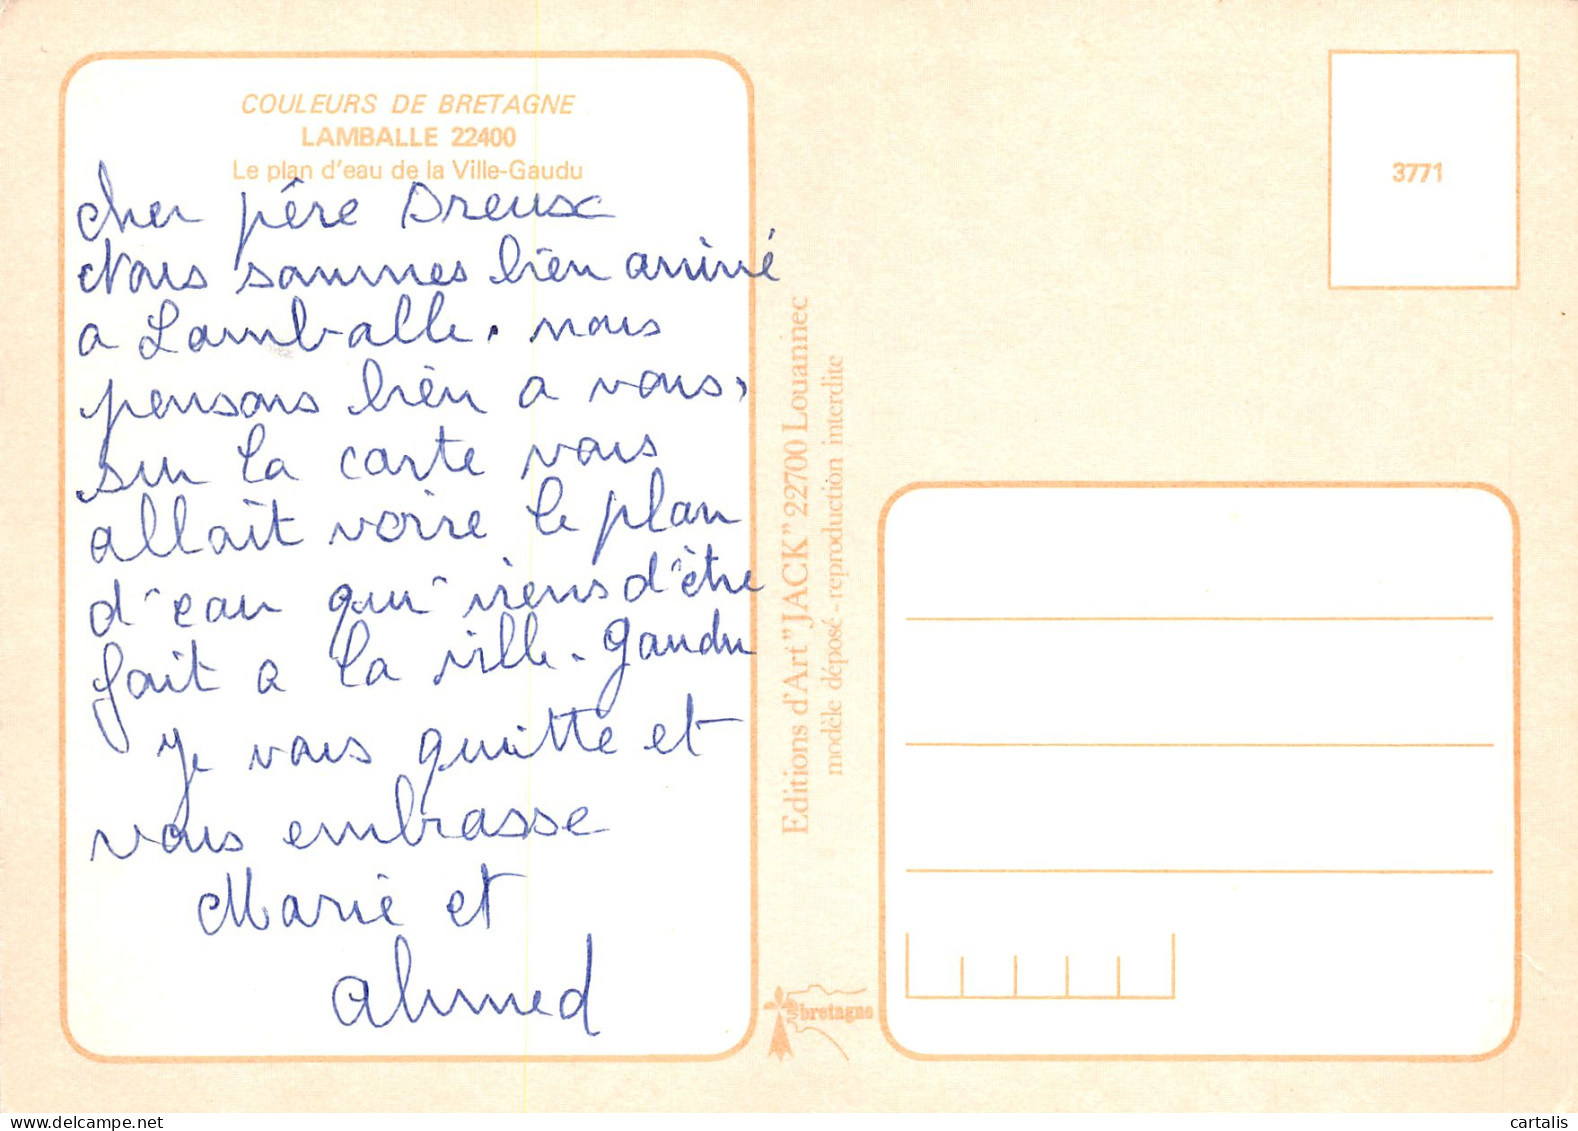 COULEURS DE BRETAGNE
LAMBALLE 22400
Le plan d'eau de la Ville-Gaudu
cher père Dreux
Nous sommes bien arrivé
a Lamballe. nous
pensons bien a vous,
sur la carte vous
allait voire le plan
d'eau qui viens d'être
fait a la ville-gaudu
Je vous quitte et
vous embrasse
Marie et
ahmed
Editions d'Art "JACK" 22700 Louannec
modèle déposé - reproduction interdite
bretagne
3771
cartalis